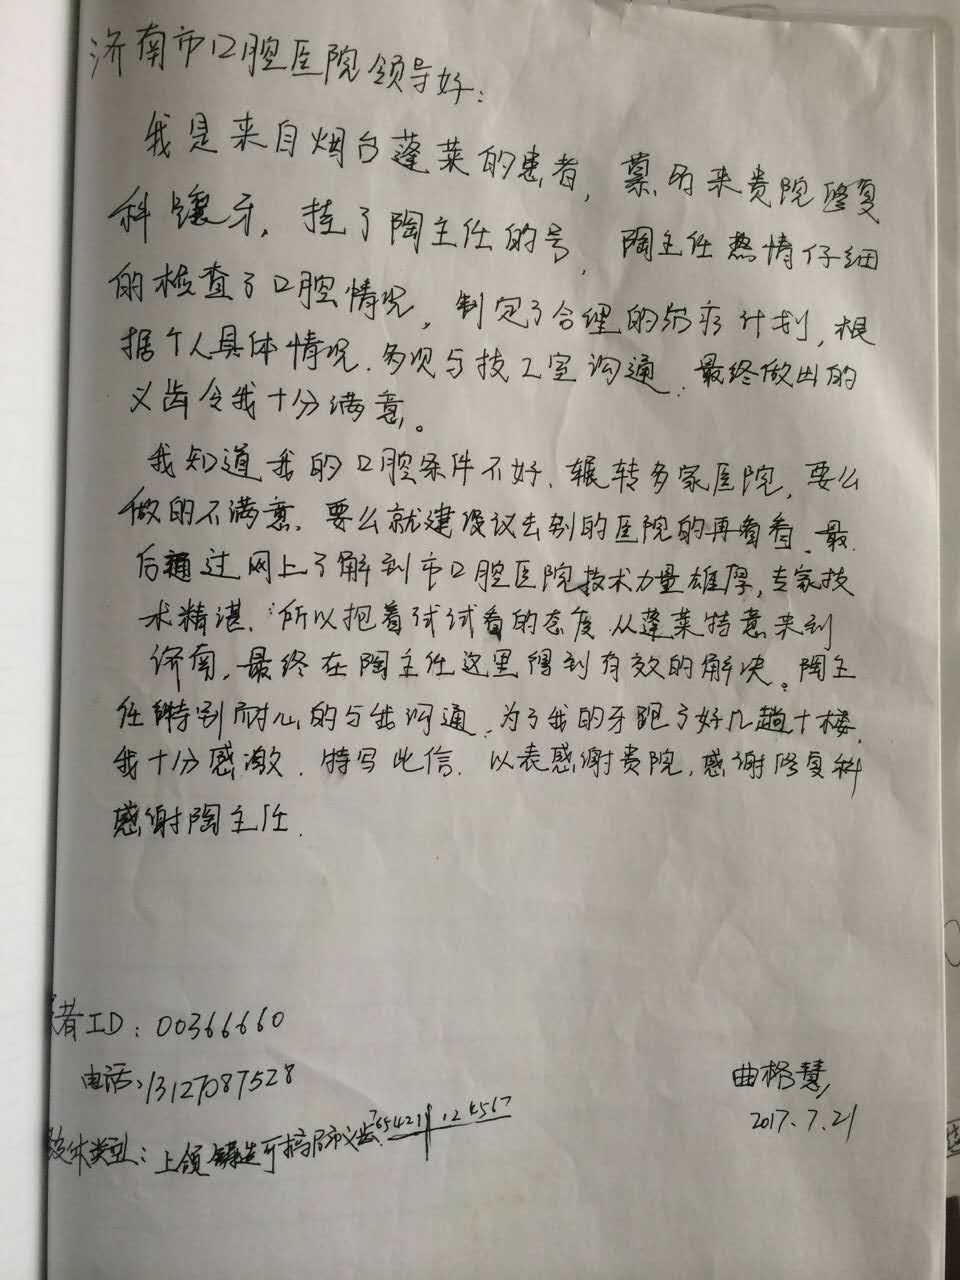 济南市口腔医院领导好：
我是来自烟台蓬莱的患者，慕名来贵院修复
科镶牙，挂了陶主任的号，陶主任热情仔细
的检查了口腔情况，制定了合理的治疗计划，根
据个人具体情况．多次与技工室沟通．最终做出的
义齿令我十分满意。
我知道我的口腔条件不好．辗转多家医院，要么
做的不满意．要么就建设议去别的医院的再看看．最
后通过网上了解到市口腔医院技术力量雄厚，专家技
术精湛．所以抱着试试看的态度从蓬莱特意来到
济南，最终在陶主任这里得到有效的解决。陶主
任特别耐心的与我沟通．为了我的牙跑了好几趟十楼．
我十分感激．特写此信．以表感谢贵院，感谢修复科
感谢陶主任．
者ID：00366660
电话：13127087528
曲格慧
2017.7.21
体类型：上颌铸造可摘局部义齿765421 124567